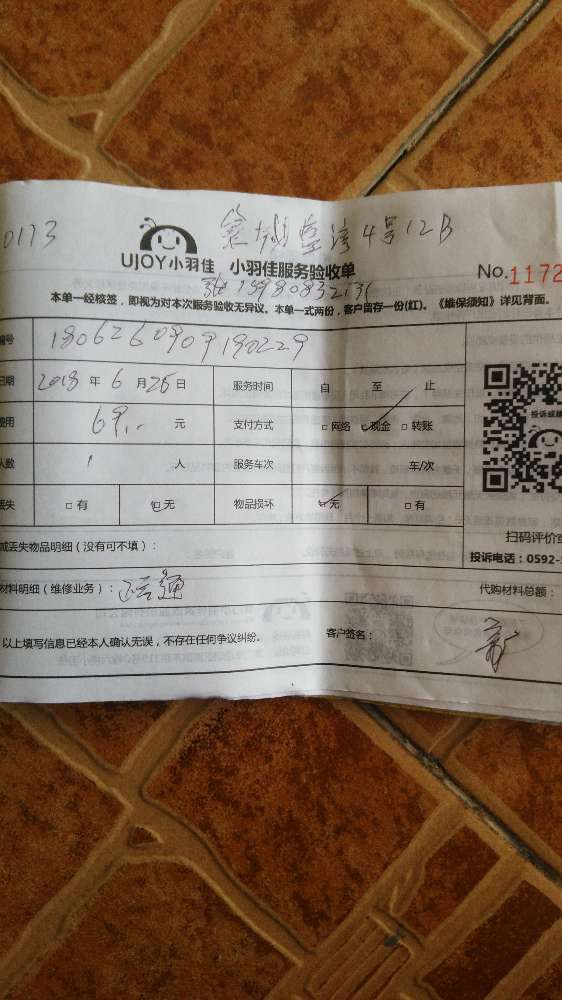 0173
4号12B
UJOY小羽佳 小羽佳服务验收单
No.1172
本单一经核签，即视为对本次服务验收无异议。本单一式两份，客户留存一份(红)。《维保须知》详见背面。
编号 1806260909190229
日期 2018 年 6 月 26 日 服务时间 自 至 止
费用 69.- 元 支付方式 □网络 ☑现金 □转账
人数 1 人 服务车次 车/次
丢失 □有 ☑无 物品损坏 ☑无 □有
或丢失物品明细（没有可不填）：
扫码评价或
投诉电话：0592-
材料明细（维修业务）：疏通 代购材料总额：
以上填写信息已经本人确认无误，不存在任何争议纠纷。 客户签名：